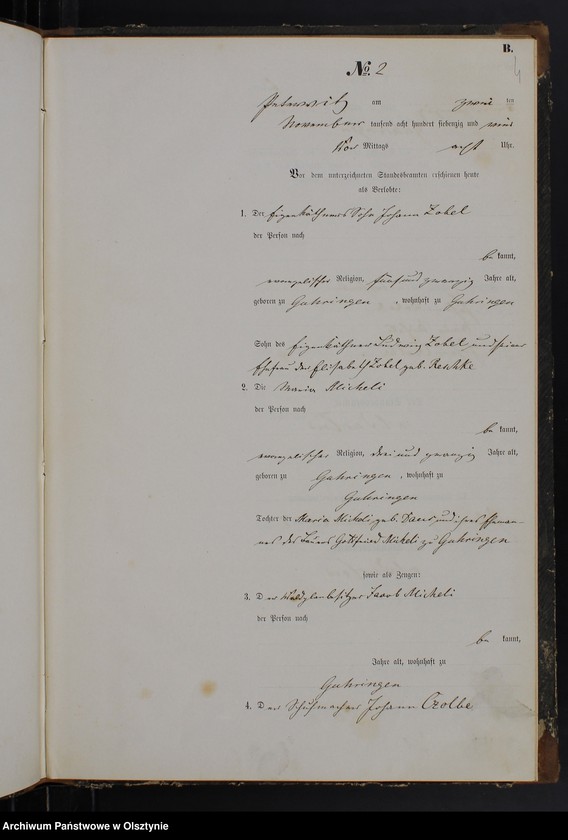 B.
4
No. 2
Peterwitz am zwei ten
November tausend acht hundert siebenzig und vier
Vor Mittags acht Uhr.
Vor dem unterzeichneten Standesbeamten erschienen heute
als Verlobte:
1. Der Eigenkäthners Sohn Johann Zobel
der Person nach
be kannt,
evangelischer Religion, fünf und zwanzig Jahre alt,
geboren zu Guhringen, wohnhaft zu Guhringen
Sohn des Eigenkäthner Ludwig Zobel und seiner
Ehefrau der Elisabeth Zobel geb. Reschke
2. Die Maria Micheli
der Person nach
be kannt,
evangelischer Religion, drei und zwanzig Jahre alt,
geboren zu Guhringen, wohnhaft zu
Guhringen
Tochter der Maria Micheli geb. Daus und ihres Eheman-
nes des Bauers Gottfried Micheli zu Guhringen
sowie als Zeugen:
3. Der Jacob Micheli
der Person nach
be kannt,
Jahre alt, wohnhaft zu
Guhringen
4. Der Schuhmacher Johann Czolbe
Archiwum Państwowe w Olsztynie